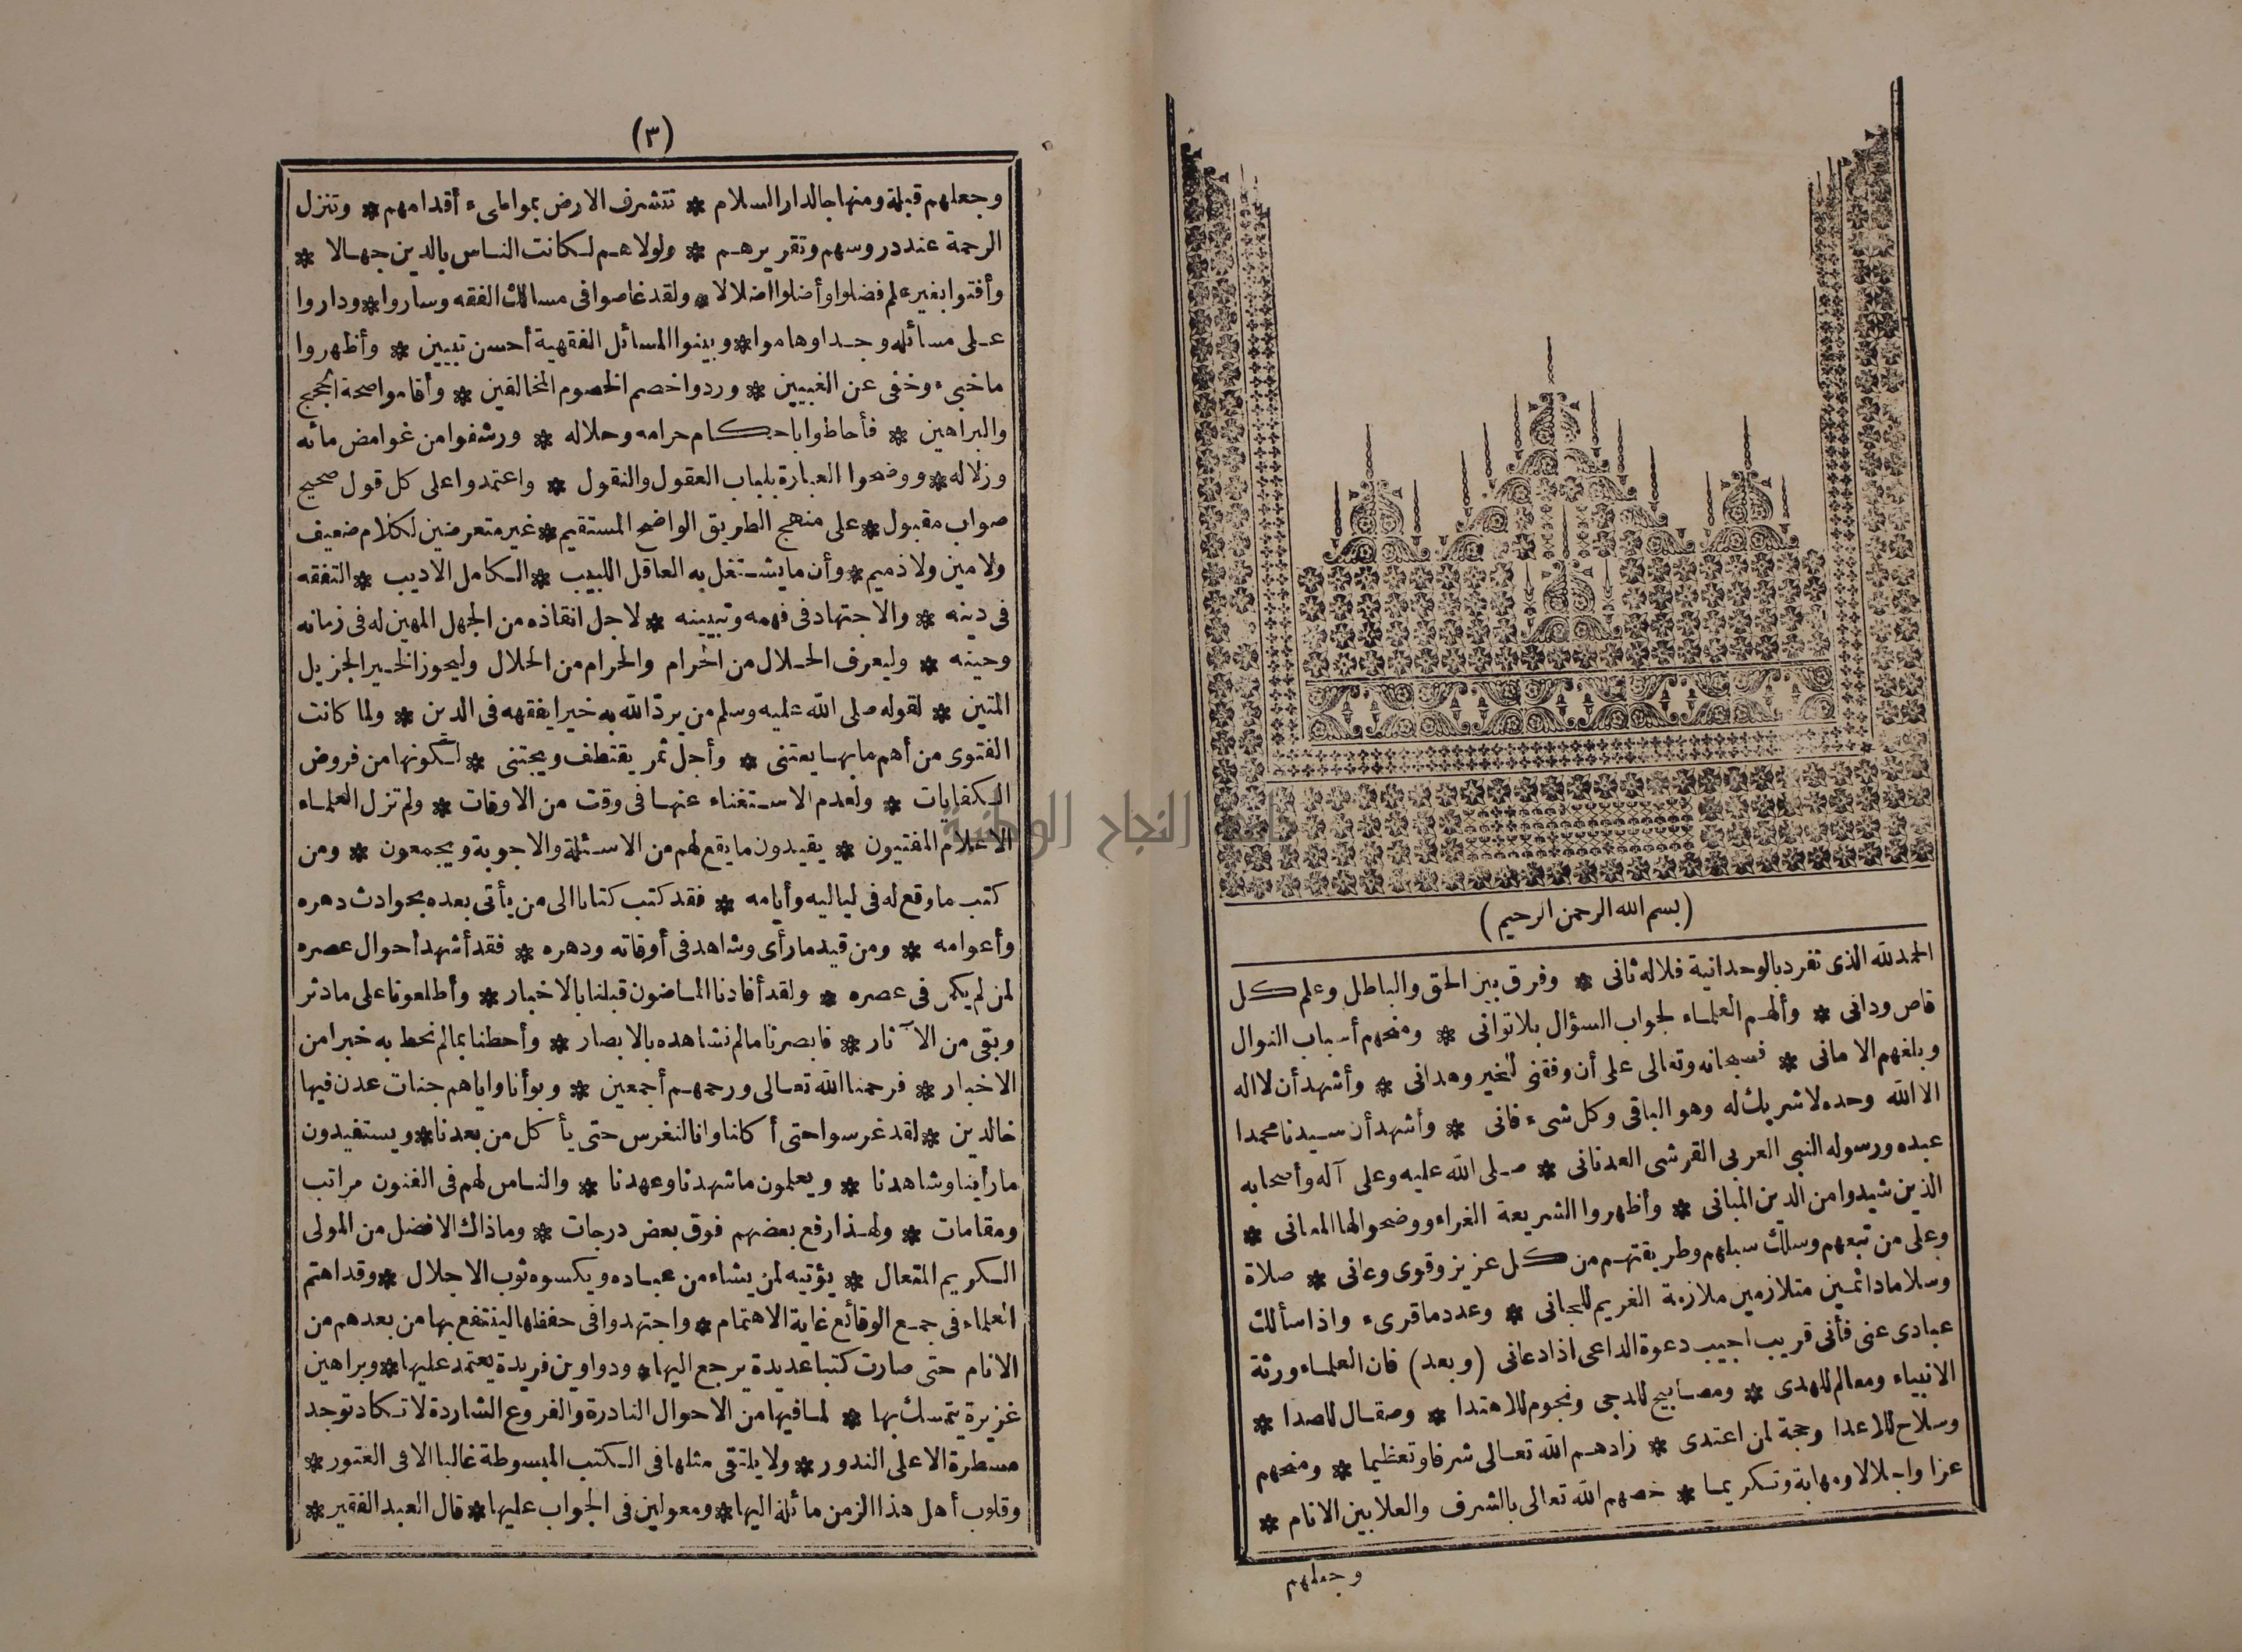 (بسم الله الرحمن الرحيم)
الحمد لله الذى تفرد بالوحدانية فلاله ثانى * وفرق بين الحق والباطل وعلم كل
قاص ودانى * وألهم العلماء لجواب السؤال بلاتوانى * ومنحهم أسباب النوال
وبلغهم الامانى * فسبحانه وتعالى على أن وفقنى لخير وهدانى * وأشهد أن لا اله
الا الله وحده لا شريك له وهو الباقى وكل شىء فانى * وأشهد أن سيدنا محمدا
عبده ورسوله النبى العربى القرشى العدنانى * صلى الله عليه وعلى آله وأصحابه
الذين شيدوا من الدين المبانى * وأظهروا الشريعة الغراء ووضحوا لها المعانى *
وعلى من تبعهم وسلك سبلهم وطريقتهم من كل عزيز وقوى وعانى * صلاة
وسلاما دائمين متلازمين ملازمة الغريم للجانى * وعدد ما قرىء واذا سألك
عبادى عنى فأنى قريب اجيب دعوة الداعى اذا دعانى (وبعد) فان العلماء ورثة
الانبياء ومعالم للهدى * ومصابيح للدجى ونجوم للاهتدا * وصقال للصدا *
وسلاح للاعدا وحجة لمن اعتدى * زادهم الله تعالى شرفا وتعظيما * ومنحهم
عزا واجلالا ومهابة وتكريما * خصهم الله تعالى بالشرف والعلا بين الانام *
وجعلهم
(٣)
وجعلهم قبلة ومنهاجا لدار السلام * تتشرف الارض بمواطىء أقدامهم * وتنزل
الرحمة عند دروسهم وتقريرهم * ولولاهم لكانت الناس بالدين جهالا *
وأفتوا بغير علم فضلوا وأضلوا اضلالا * ولقد غاصوا فى مسالك الفقه وساروا * وداروا
على مسائله وجدا وهاموا * وبينوا المسائل الفقهية أحسن تبيين * وأظهروا
ما خبىء وخفى عن الغبيين * وردوا خصم الخصوم المخالفين * وأقاموا صحة الحجج
والبراهين * فأحاطوا باحكام حرامه وحلاله * ورشفوا من غوامض مائه
وزلاله * ووضحوا العبارة بلباب العقول والنقول * واعتمدوا على كل قول صحيح
صواب مقبول * على منهج الطريق الواضح المستقيم * غير متعرضين لكلام ضعيف
ولا مين ولا ذميم * وأن ما يشتغل به العاقل اللبيب * الكامل الاديب * التفقه
فى دينه * والاجتهاد فى فهمه وتبيينه * لاجل انقاذه من الجهل المهين له فى زمانه
وحينه * وليعرف الحلال من الحرام والحرام من الحلال وليحوز الخير الجزيل
المتين * لقوله صلى الله عليه وسلم من يرد الله به خيرا يفقهه فى الدين * ولما كانت
الفتوى من أهم ما بها يعتنى * وأجل ثمر يقتطف ويجتنى * لكونها من فروض
الكفايات * ولعدم الاستغناء عنها فى وقت من الاوقات * ولم تزل العلماء
الاعلام المفتيون * يقيدون ما يقع لهم من الاسئلة والاجوبة ويجمعون * ومن
كتب ما وقع له فى لياليه وأيامه * فقد كتب كتابا الى من يأتى بعده بحوادث دهره
وأعوامه * ومن قيد ما رأى وشاهد فى أوقاته ودهره * فقد أشهد أحوال عصره
لمن لم يكن فى عصره * ولقد أفادنا الماضون قبلنا بالاخبار * وأطلعونا على ما دثر
وبقى من الآثار * فابصرنا ما لم نشاهده بالابصار * وأحطنا بما لم نحط به خبرا من
الاخبار * فرحمنا الله تعالى ورحمهم أجمعين * وبوأنا واياهم جنات عدن فيها
خالدين * لقد غرسوا حتى أكلنا وانا لنغرس حتى يأكل من بعدنا * ويستفيدون
ما رأينا وشاهدنا * ويعلمون ما شهدنا وعهدنا * والناس لهم فى الفنون مراتب
ومقامات * ولهذا رفع بعضهم فوق بعض درجات * وما ذاك الا فضل من المولى
الكريم المتعال * يؤتيه لمن يشاء من عباده ويكسوه ثوب الاجلال * وقد اهتم
العلماء فى جمع الوقائع غاية الاهتمام * واجتهدوا فى حفظها لينتفع بها من بعدهم من
الانام حتى صارت كتبا عديدة يرجع اليها * ودواوين فريدة يعتمد عليها * وبراهين
غزيرة يتمسك بها * لما فيها من الاحوال النادرة والفروع الشاردة لا تكاد توجد
مسطرة الا على الندور * ولا يلتقى مثلها فى الكتب المبسوطة غالبا الا فى العتور *
وقلوب أهل هذا الزمن مائلة اليها * ومعولين فى الجواب عليها * قال العبد الفقير *
النجاح الوطنية